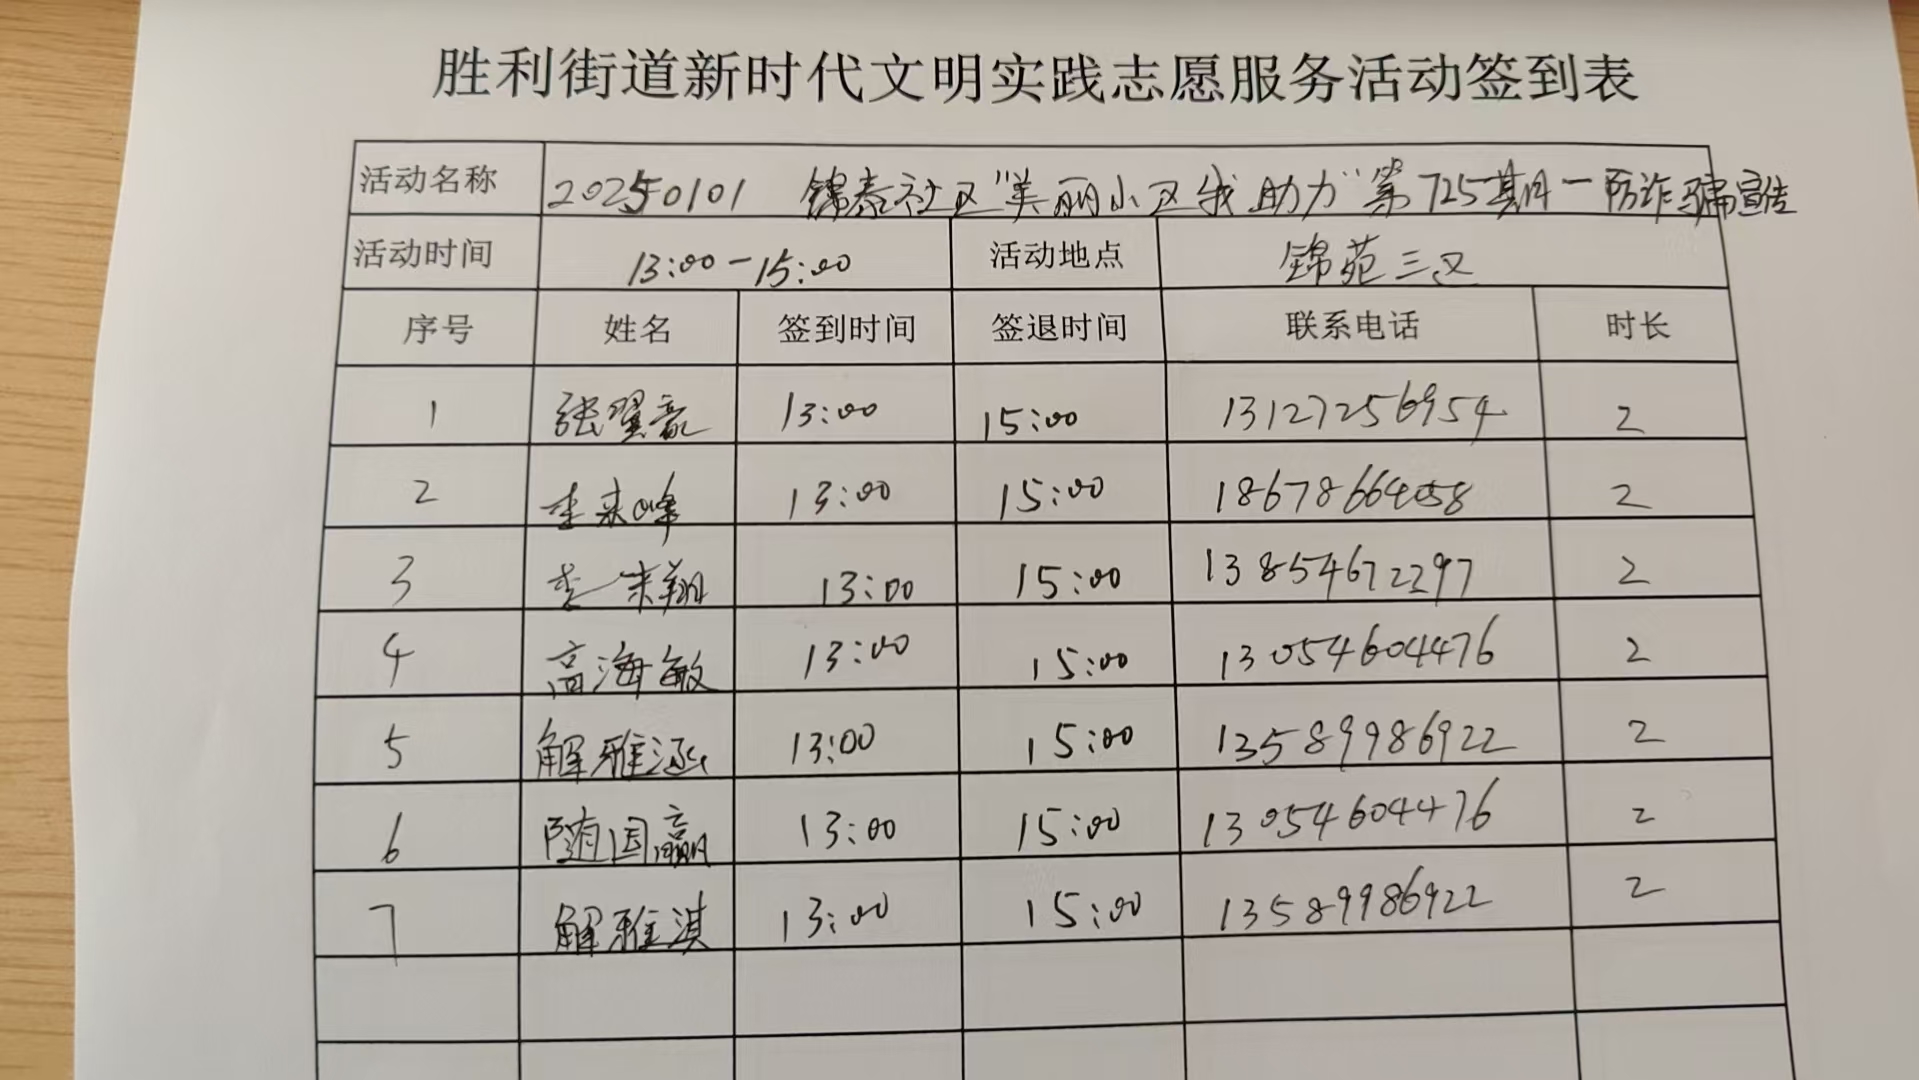 胜利街道新时代文明实践志愿服务活动签到表
活动名称 20250101 锦泰社区"美丽小区我助力"第725期-防诈骗宣传
活动时间 13:00-15:00 活动地点 锦苑三区
序号 姓名 签到时间 签退时间 联系电话 时长
1 张翼豪 13:00 15:00 13127256954 2
2 李来峰 13:00 15:00 18678664058 2
3 李一来翔 13:00 15:00 13854672297 2
4 高海敏 13:00 15:00 13054604476 2
5 解雅涵 13:00 15:00 13589986922 2
6 随国赢 13:00 15:00 13054604476 2
7 解雅淇 13:00 15:00 13589986922 2